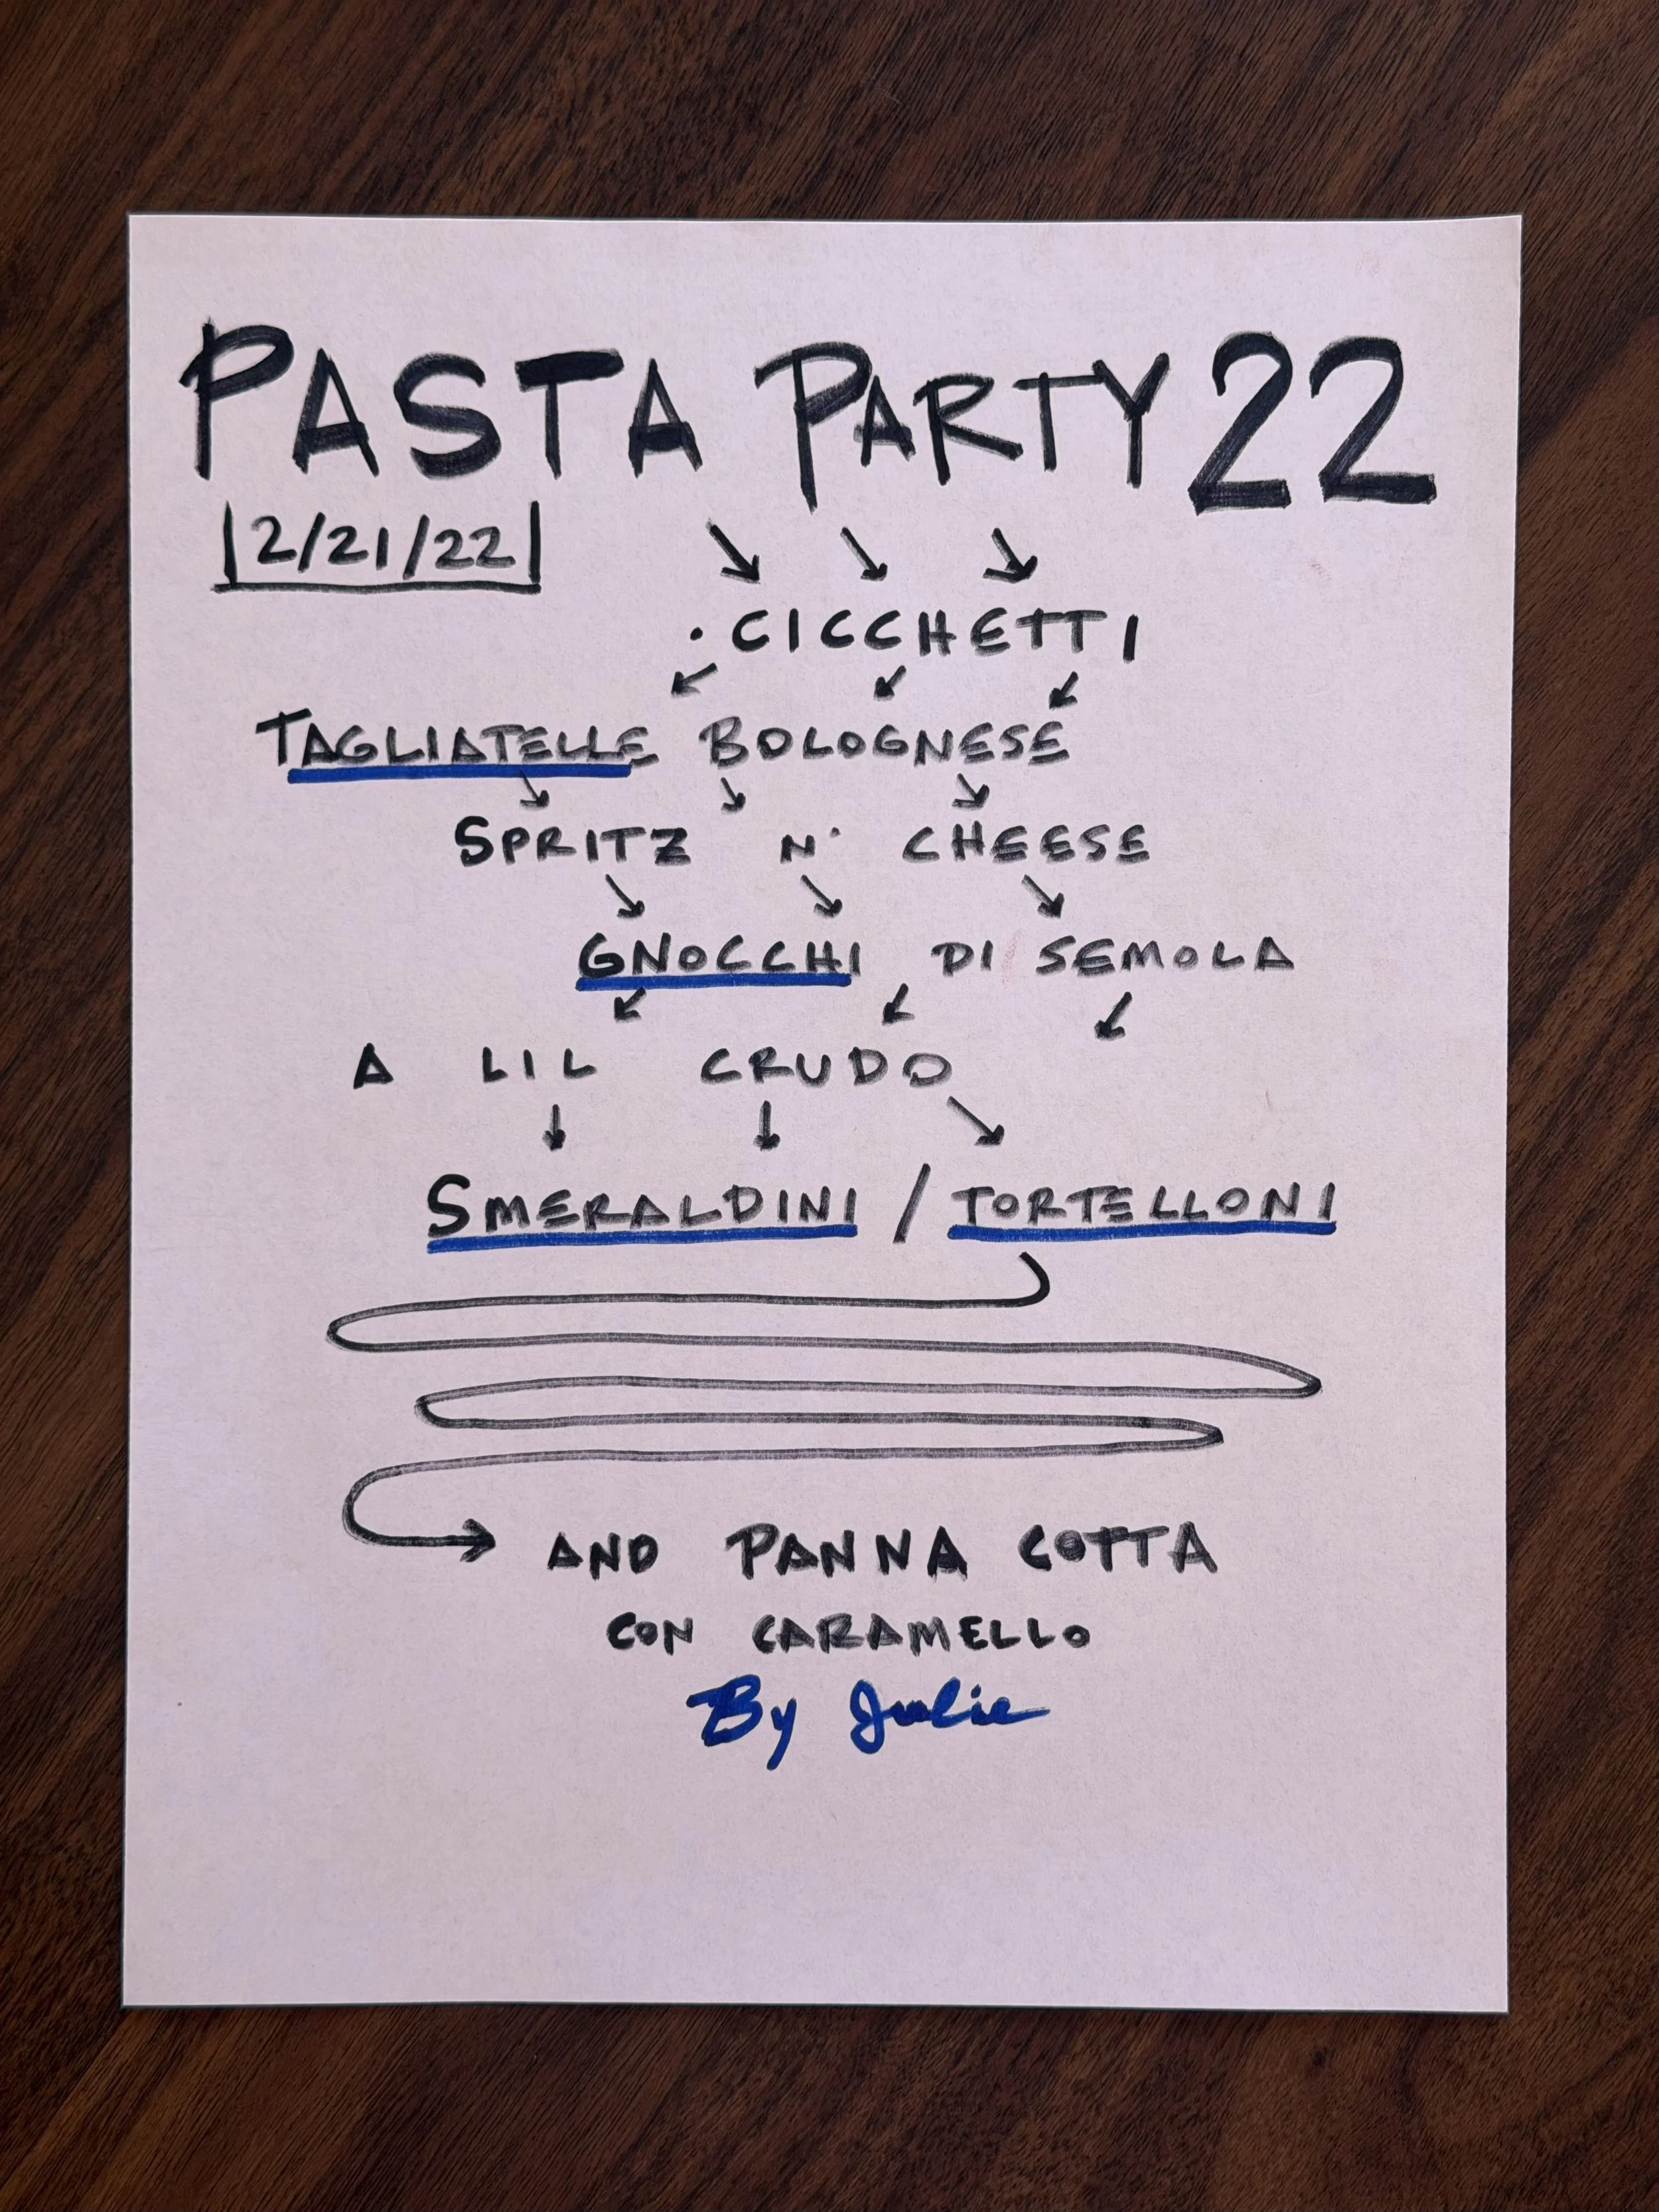 PASTA PARTY 22
2/21/22
· CICCHETTI
TAGLIATELLE BOLOGNESE
SPRITZ N' CHEESE
GNOCCHI DI SEMOLA
A LIL CRUDO
SMERALDINI / TORTELLONI
AND PANNA COTTA
CON CARAMELLO
By Julie